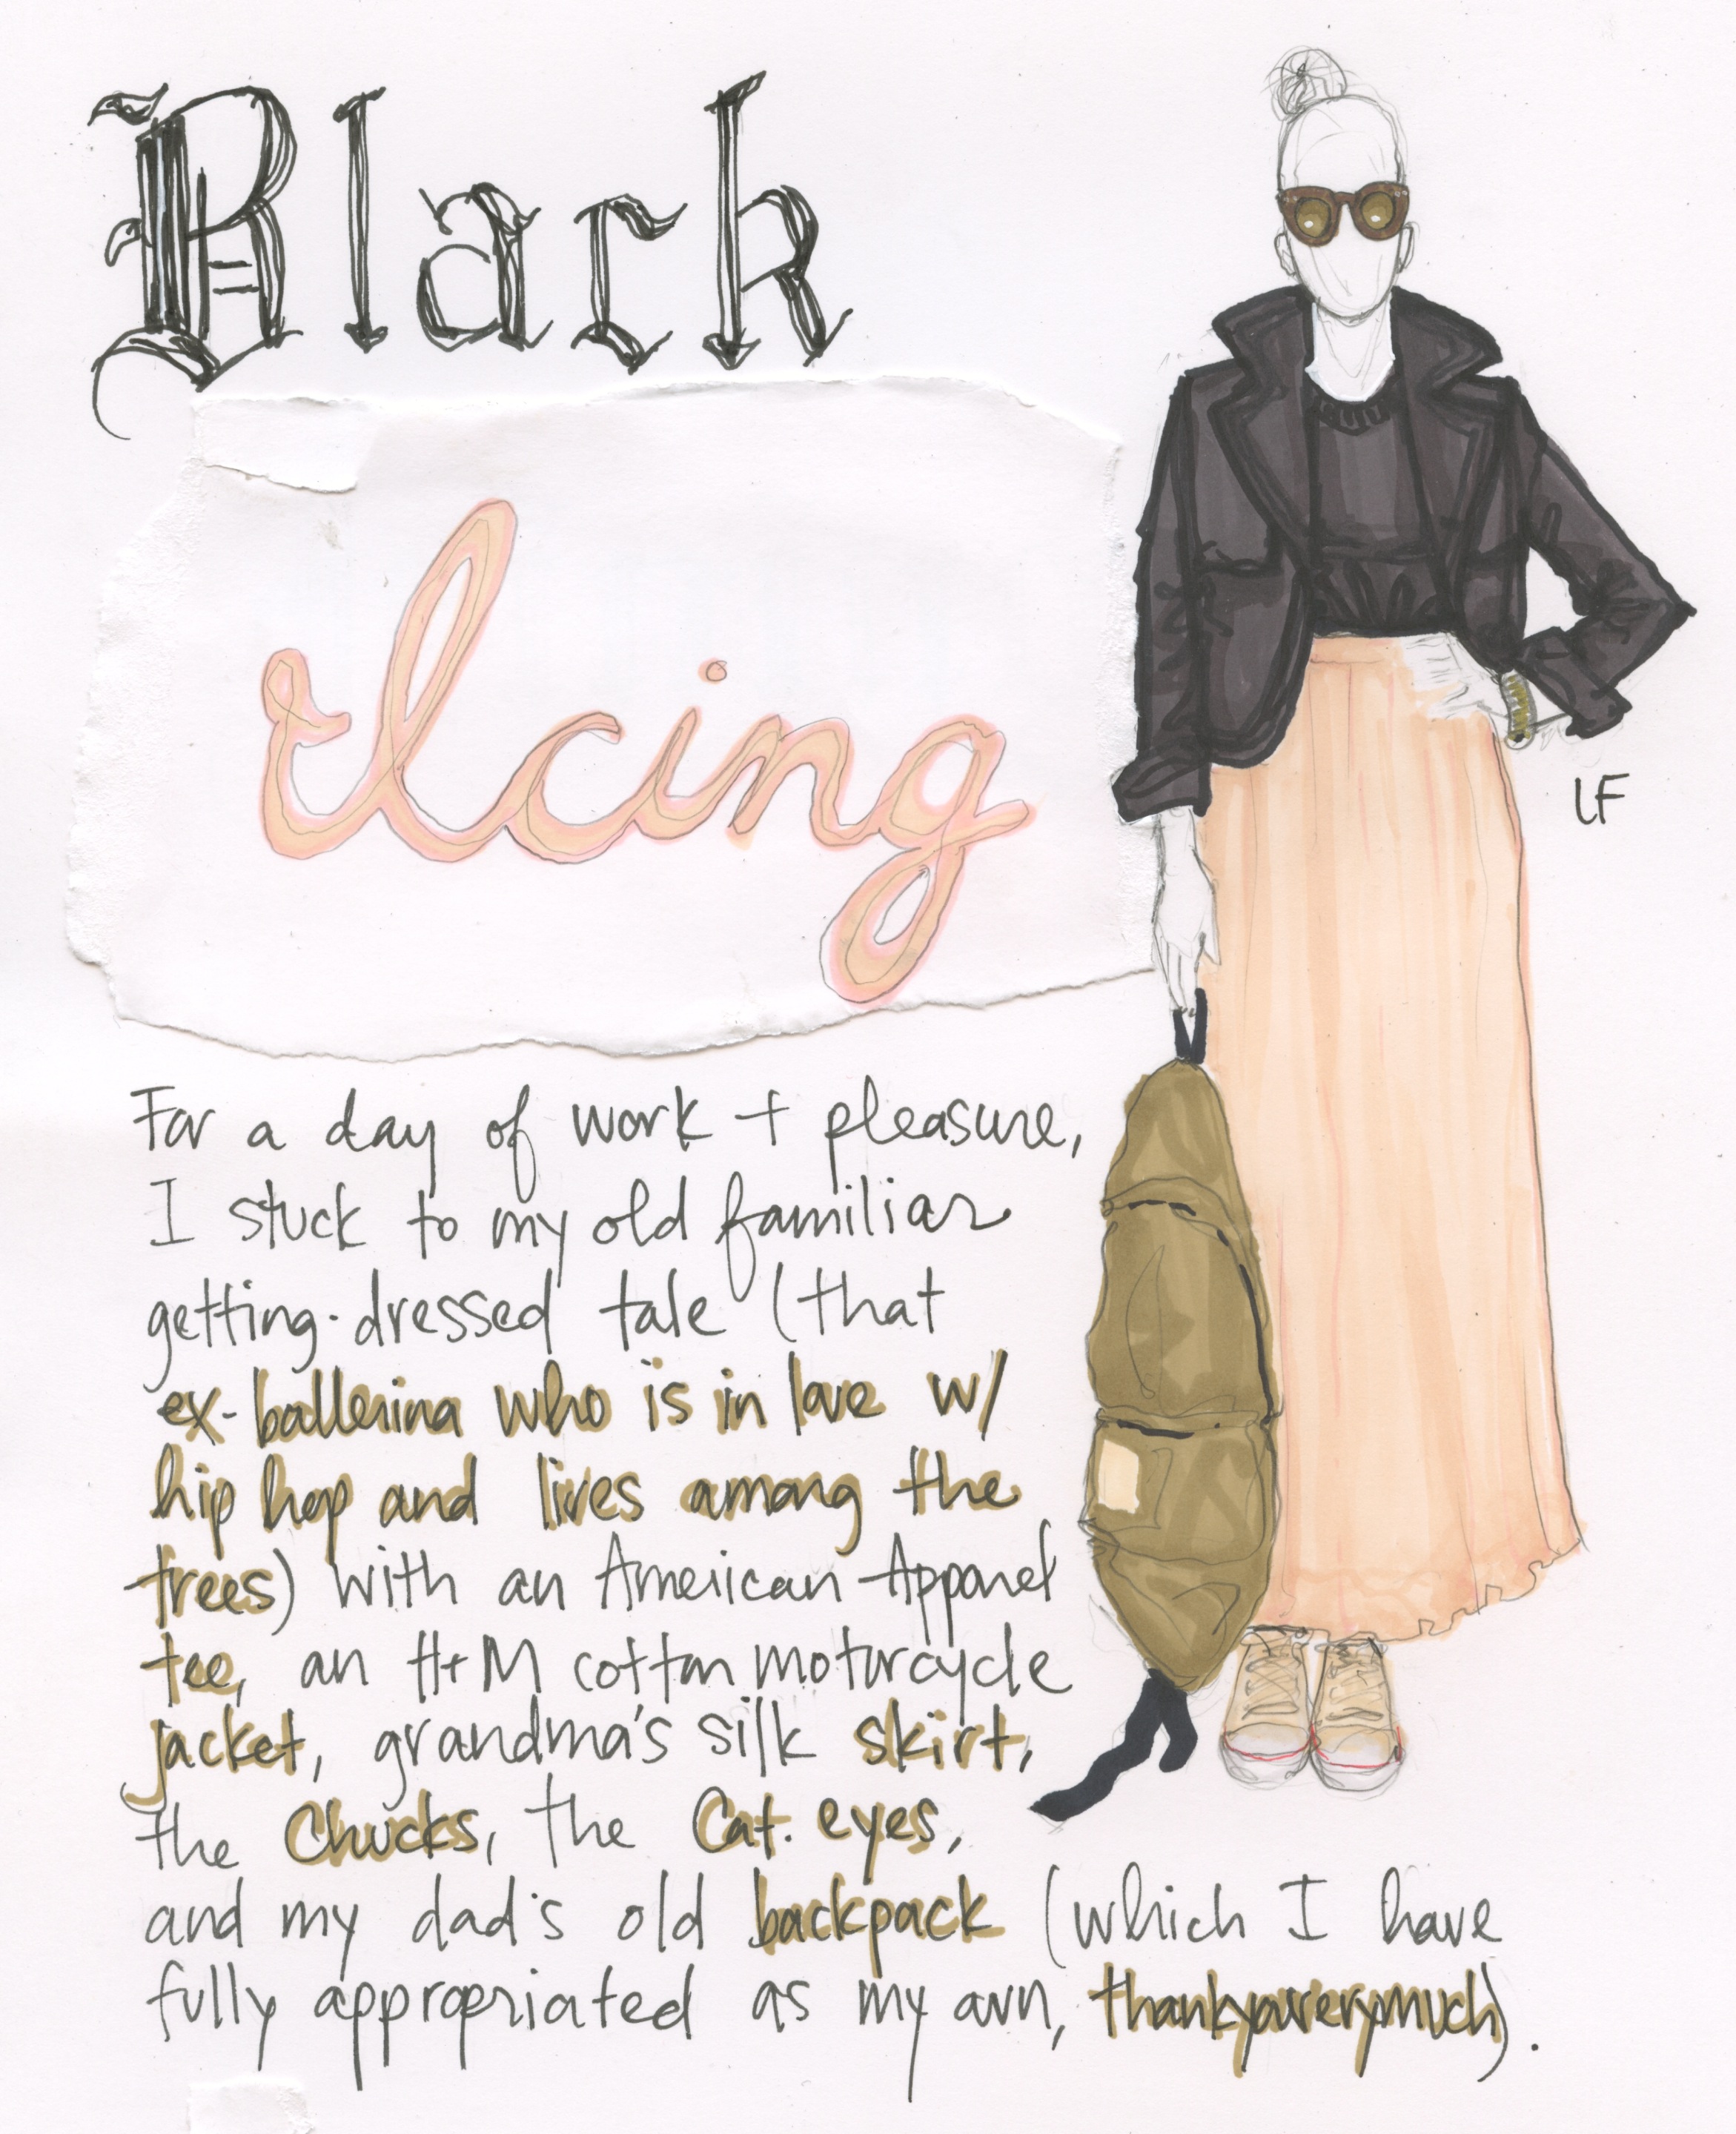 Black
Icing
LF
For a day of work + pleasure,
I stuck to my old familiar
getting-dressed tale (that
ex-ballerina who is in love w/
hip hop and lives among the
trees) with an American Apparel
tee, an H+M cotton motorcycle
jacket, grandma's silk skirt,
the Chucks, the Cat. eyes,
and my dad's old backpack (which I have
fully appropriated as my own, thankyouverymuch).